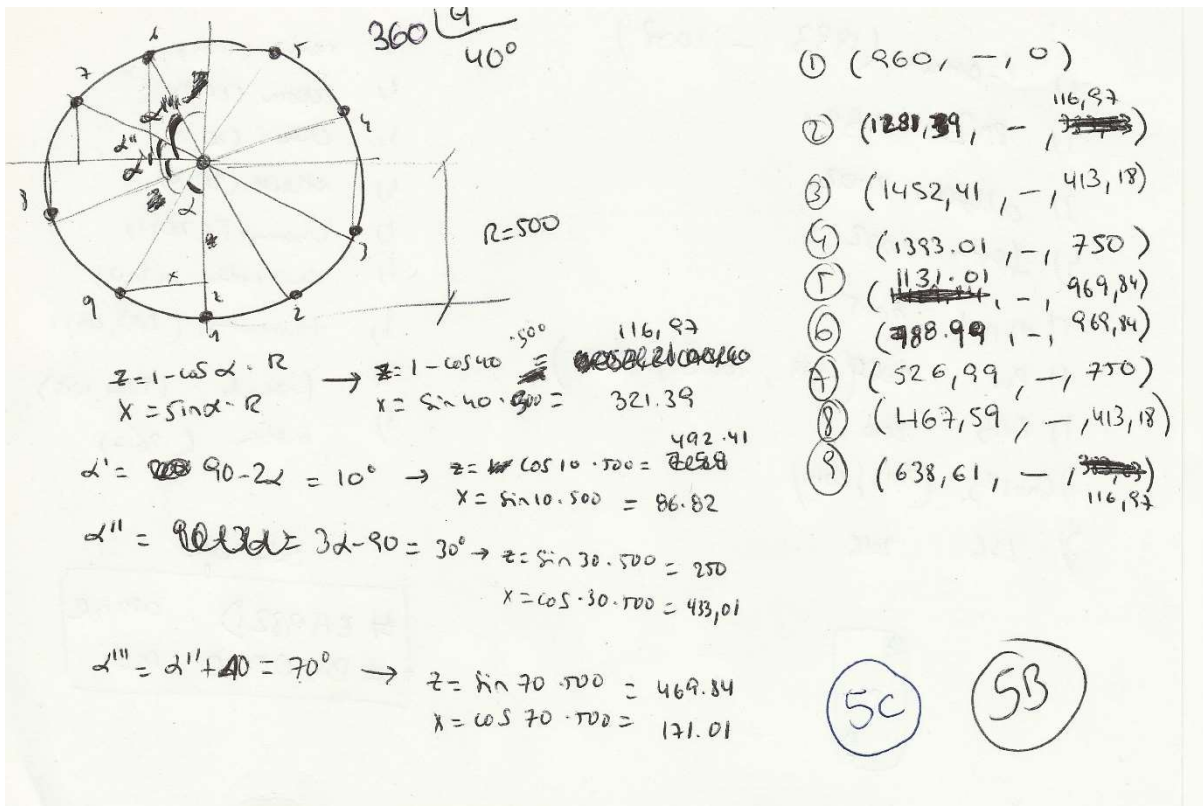 360
40°
6
5
7
4
α'''
α''
α'
α
8
3
R=500
x
z
9
1
2
z=1-cosα·R → z=1-cos40 ·500 = 116,97
x=sinα·R x=sin40·500= 321.39
α'= 90-2α = 10° → z= cos10·500= 492.41
x=sin10·500 = 86.82
α''= 3α-90 = 30° → z=sin30·500 = 250
x=cos·30·500 = 433,01
α'''=α''+40 = 70° → z=sin70·500 = 469.84
x=cos70·500= 171.01
① (960, -, 0)
116,97
② (1281,39, -, )
③ (1452,41, -, 413,18)
④ (1393.01, -, 750)
⑤ (1131.01, -, 969,84)
⑥ (788.99, -, 969,84)
⑦ (526,99, -, 750)
⑧ (467,59, -, 413,18)
⑨ (638,61, -, )
116,97
5C
5B